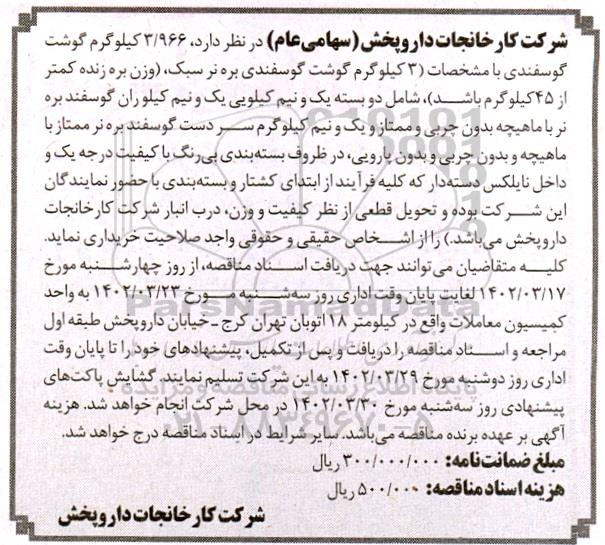 شرکت کارخانجات داروپخش (سهامی عام) در نظر دارد، ۳/۹۶۶ کیلوگرم گوشت
گوسفندی با مشخصات (۳ کیلوگرم گوشت گوسفندی بره نر سبک، (وزن بره زنده کمتر
از ۴۵ کیلوگرم باشد)، شامل دو بسته یک و نیم کیلویی یک و نیم کیلو ران گوسفند بره
نر با ماهیچه بدون چربی و ممتاز و یک و نیم کیلوگرم سر دست گوسفند بره نر ممتاز با
ماهیچه و بدون چربی و بدون پارویی، در ظروف بسته‌بندی بی‌رنگ با کیفیت درجه یک و
داخل نایلکس دسته‌دار که کلیه فرآیند از ابتدای کشتار و بسته‌بندی با حضور نمایندگان
این شرکت بوده و تحویل قطعی از نظر کیفیت و وزن، درب انبار شرکت کارخانجات
داروپخش می‌باشد.) را از اشخاص حقیقی و حقوقی واجد صلاحیت خریداری نماید.
کلیه متقاضیان می‌توانند جهت دریافت اسناد مناقصه، از روز چهارشنبه مورخ
۱۴۰۲/۰۳/۱۷ لغایت پایان وقت اداری روز سه‌شنبه مورخ ۱۴۰۲/۰۳/۲۳ به واحد
کمیسیون معاملات واقع در کیلومتر ۱۸ اتوبان تهران کرج - خیابان داروپخش طبقه اول
مراجعه و اسناد مناقصه را دریافت و پس از تکمیل، پیشنهادهای خود را تا پایان وقت
اداری روز دوشنبه مورخ ۱۴۰۲/۰۳/۲۹ به این شرکت تسلیم نمایند. گشایش پاکت‌های
پیشنهادی روز سه‌شنبه مورخ ۱۴۰۲/۰۳/۳۰ در محل شرکت انجام خواهد شد. هزینه
آگهی بر عهده برنده مناقصه می‌باشد. سایر شرایط در اسناد مناقصه درج خواهد شد.
مبلغ ضمانت‌نامه: ۳۰۰/۰۰۰/۰۰۰ ریال
هزینه اسناد مناقصه: ۵۰۰/۰۰۰ ریال
شرکت کارخانجات داروپخش
ParsNamadData
۰۲۱-۸۸۳۴۹۶۷۰-۵